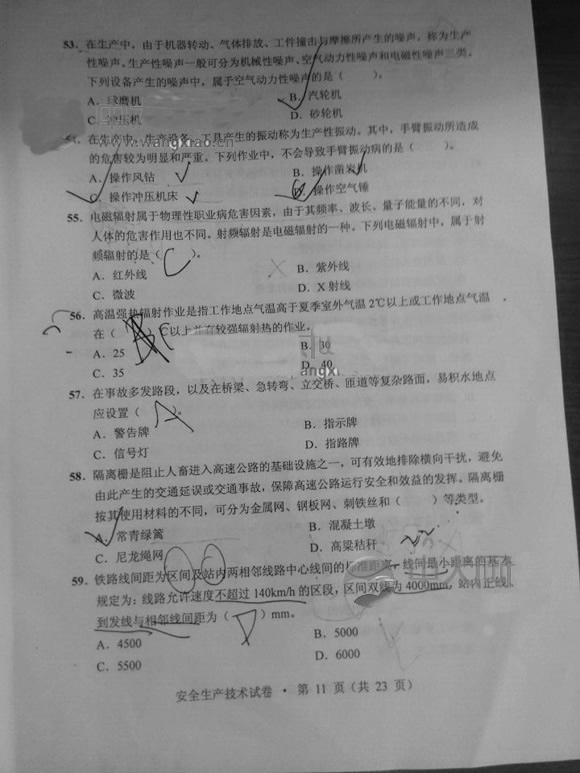 53. 在生产中，由于机器转动、气体排放、工件撞击与摩擦所产生的噪声，称为生产
性噪声。生产性噪声一般可分为机械性噪声、空气动力性噪声和电磁性噪声三类。
下列设备产生的噪声中，属于空气动力性噪声的是（ ）。
A. 球磨机 B. 汽轮机
C. 冲压机 D. 砂轮机
www.wangxiao.cn
54. 在生产中，生产设备、工具产生的振动称为生产性振动。其中，手臂振动所造成
的危害较为明显和严重。下列作业中，不会导致手臂振动病的是（ ）。
A. 操作风钻 B. 操作凿岩机
C. 操作冲压机床 D. 操作空气锤
55. 电磁辐射属于物理性职业病危害因素，由于其频率、波长、量子能量的不同，对
人体的危害作用也不同。射频辐射是电磁辐射的一种。下列电磁辐射中，属于射
频辐射的是（ C ）。
A. 红外线 B. 紫外线
C. 微波 D. X 射线
56. 高温强热辐射作业是指工作地点气温高于夏季室外气温 2℃以上或工作地点气温
在（ ）℃以上并有较强辐射热的作业。
A. 25 B. 30
C. 35 D. 40
57. 在事故多发路段，以及在桥梁、急转弯、立交桥、匝道等复杂路面，易积水地点
应设置（ A ）。
A. 警告牌 B. 指示牌
C. 信号灯 D. 指路牌
58. 隔离栅是阻止人畜进入高速公路的基础设施之一，可有效地排除横向干扰，避免
由此产生的交通延误或交通事故，保障高速公路运行安全和效益的发挥。隔离栅
按其使用材料的不同，可分为金属网、钢板网、刺铁丝和（ ）等类型。
A. 常青绿篱 B. 混凝土墩
C. 尼龙绳网 D. 高粱秸秆
59. 铁路线间距为区间及站内两相邻线路中心线间的标准距离。线间最小距离的基本
规定为：线路允许速度不超过 140km/h 的区段，区间双线为 4000mm，站内正线、
到发线与相邻线间距为（ ）mm。
A. 4500 B. 5000
C. 5500 D. 6000
安全生产技术试卷 · 第 11 页（共 23 页）